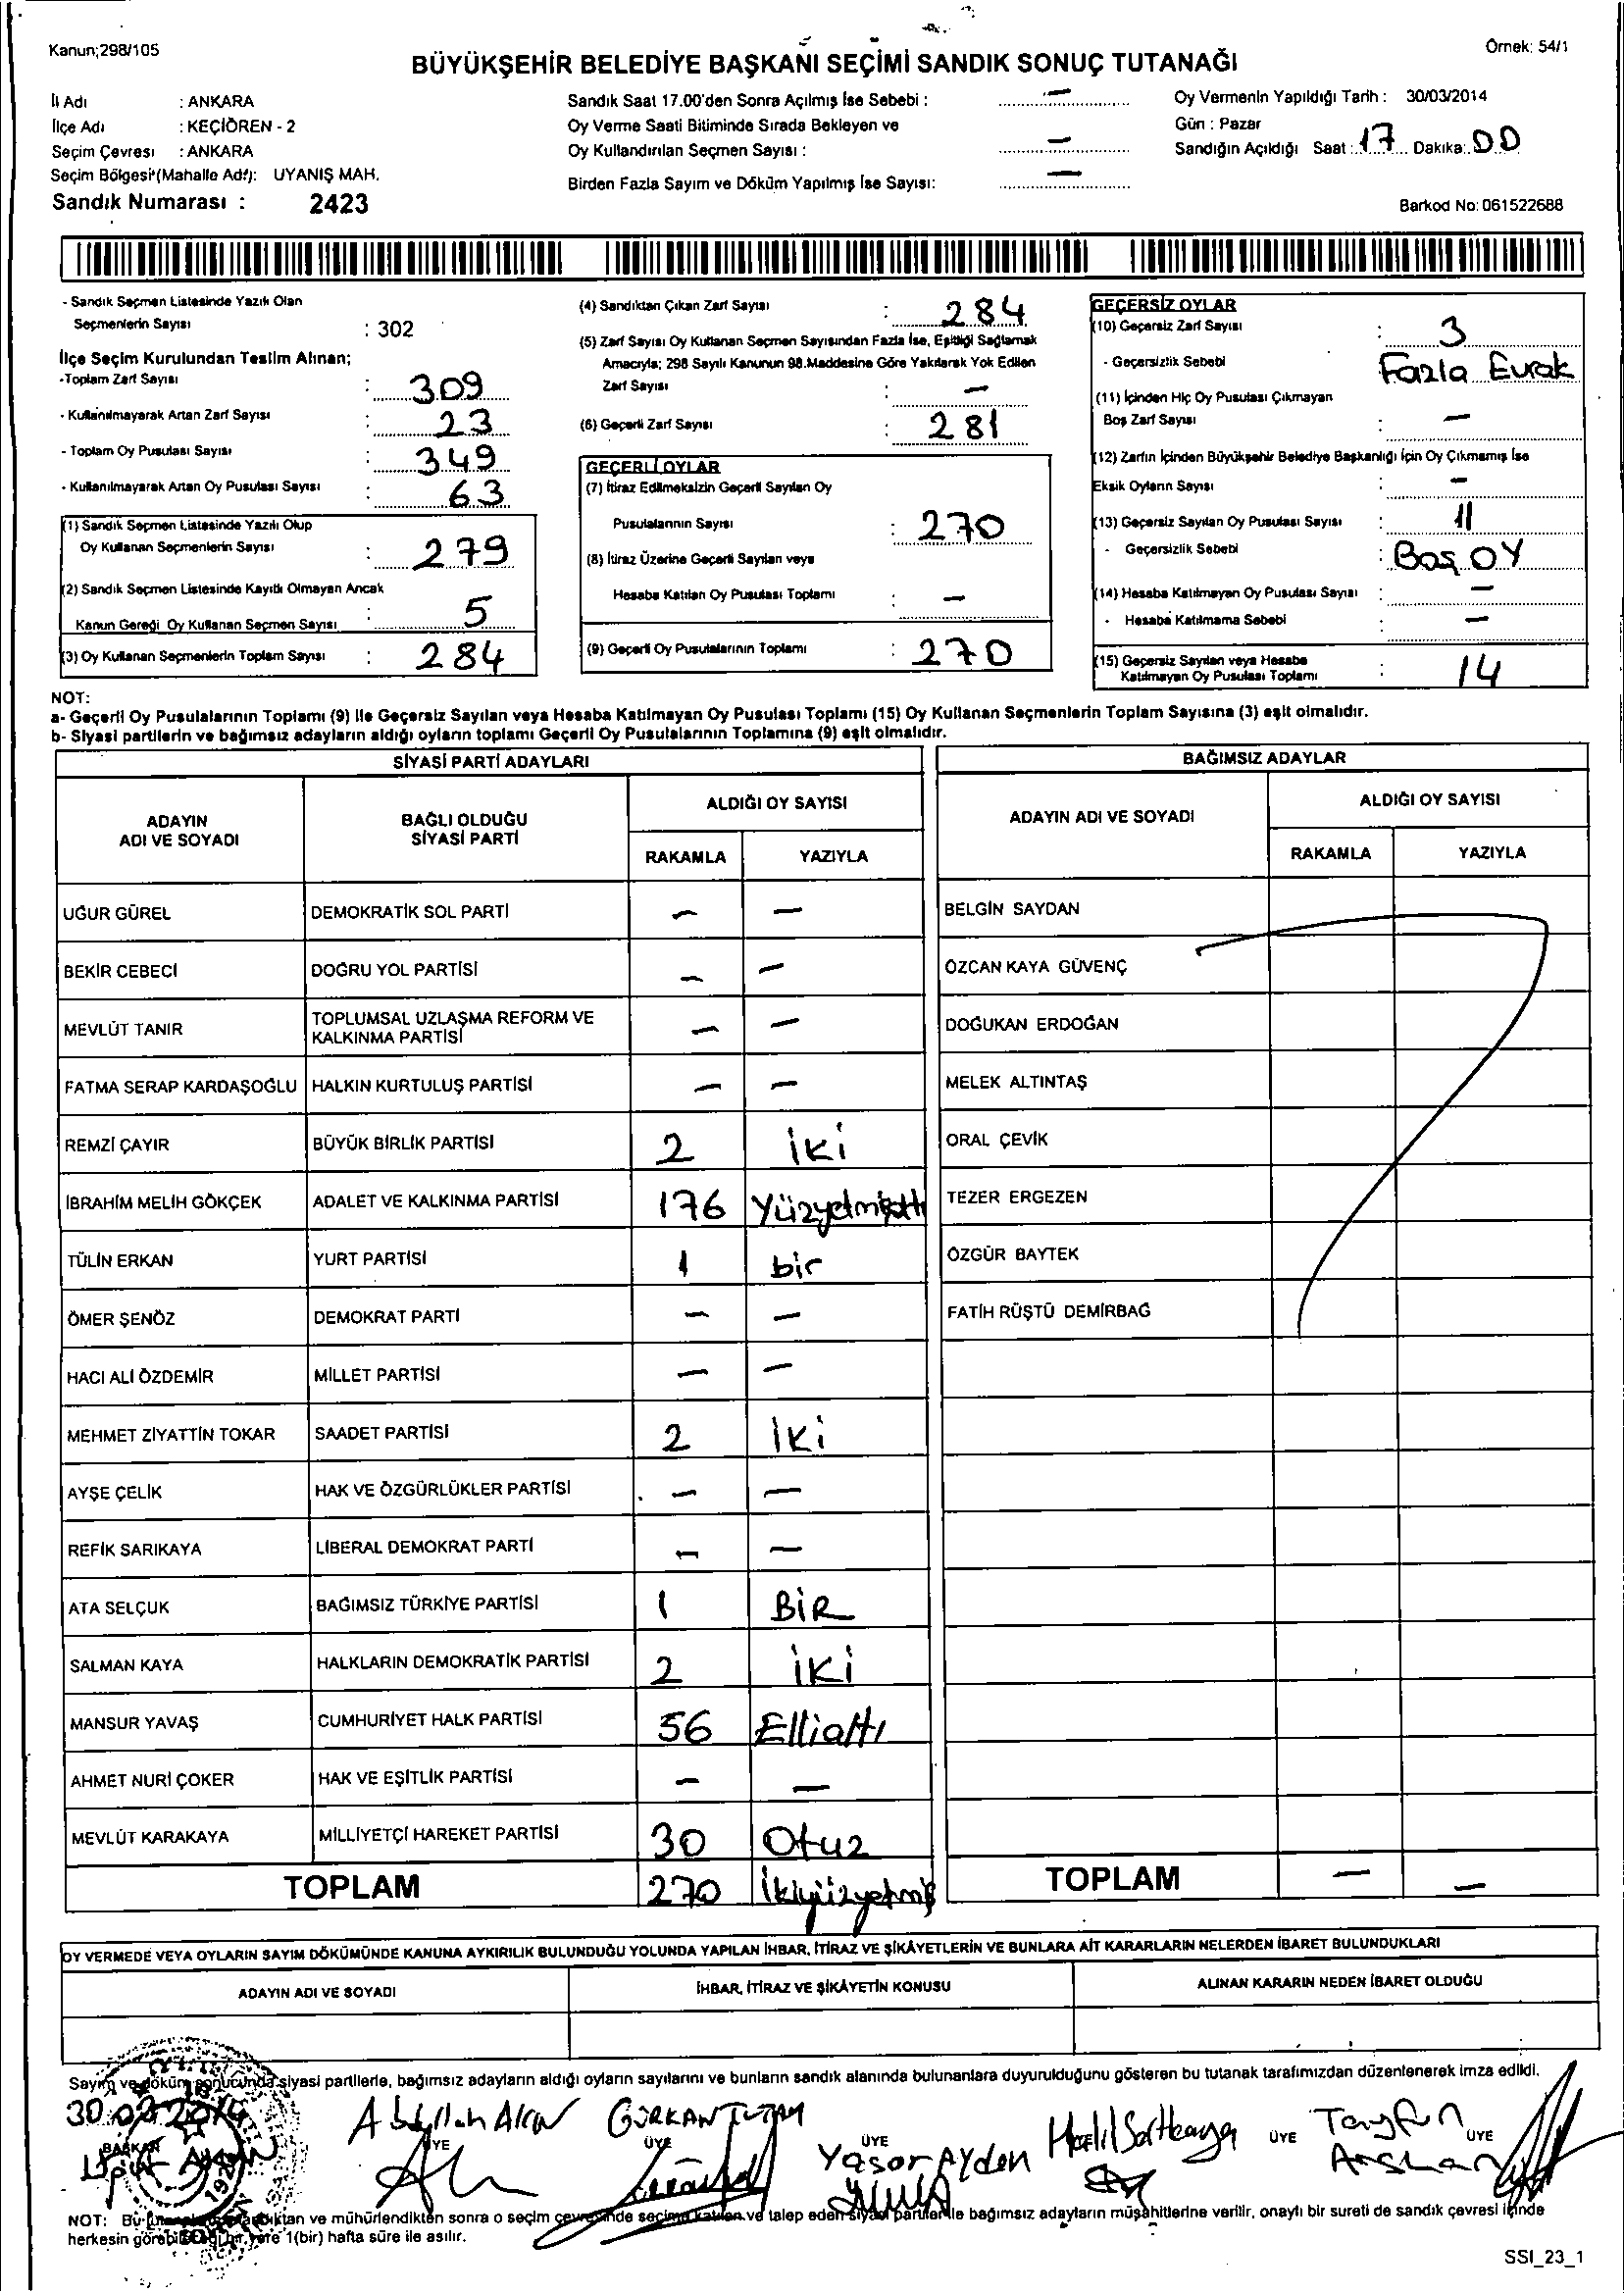 Kanun;298/105
Örnek: 54/1
BÜYÜKŞEHİR BELEDİYE BAŞKANI SEÇİMİ SANDIK SONUÇ TUTANAĞI
İl Adı : ANKARA
İlçe Adı : KEÇİÖREN - 2
Seçim Çevresi : ANKARA
Seçim Bölgesi (Mahalle Adı): UYANIŞ MAH.
Sandık Numarası : 2423
Sandık Saat 17.00'den Sonra Açılmış İse Sebebi : —
Oy Verme Saati Bitiminde Sırada Bekleyen ve
Oy Kullandırılan Seçmen Sayısı : —
Birden Fazla Sayım ve Döküm Yapılmış İse Sayısı: —
Oy Vermenin Yapıldığı Tarih : 30/03/2014
Gün : Pazar
Sandığın Açıldığı Saat : 17 Dakika: 00
Barkod No: 061522688
- Sandık Seçmen Listesinde Yazılı Olan
Seçmenlerin Sayısı : 302
İlçe Seçim Kurulundan Teslim Alınan;
-Toplam Zarf Sayısı : 309
- Kullanılmayarak Artan Zarf Sayısı : 23
- Toplam Oy Pusulası Sayısı : 349
- Kullanılmayarak Artan Oy Pusulası Sayısı : 63
(1) Sandık Seçmen Listesinde Yazılı Olup
Oy Kullanan Seçmenlerin Sayısı : 279
(2) Sandık Seçmen Listesinde Kayıtlı Olmayan Ancak
Kanun Gereği Oy Kullanan Seçmen Sayısı : 5
(3) Oy Kullanan Seçmenlerin Toplam Sayısı : 284
(4) Sandıktan Çıkan Zarf Sayısı : 284
(5) Zarf Sayısı Oy Kullanan Seçmen Sayısından Fazla İse, Eşitliği Sağlamak
Amacıyla; 298 Sayılı Kanunun 98.Maddesine Göre Yakılarak Yok Edilen
Zarf Sayısı : —
(6) Geçerli Zarf Sayısı : 281
GEÇERLİ OYLAR
(7) İtiraz Edilmeksizin Geçerli Sayılan Oy
Pusulalarının Sayısı : 270
(8) İtiraz Üzerine Geçerli Sayılan veya
Hesaba Katılan Oy Pusulası Toplamı : —
(9) Geçerli Oy Pusulalarının Toplamı : 270
GEÇERSİZ OYLAR
(10) Geçersiz Zarf Sayısı : 3
- Geçersizlik Sebebi : Fazla Evrak
(11) İçinden Hiç Oy Pusulası Çıkmayan
Boş Zarf Sayısı : —
(12) Zarfın İçinden Büyükşehir Belediye Başkanlığı İçin Oy Çıkmamış İse
Eksik Oyların Sayısı : —
(13) Geçersiz Sayılan Oy Pusulası Sayısı : 11
- Geçersizlik Sebebi : Boş OY
(14) Hesaba Katılmayan Oy Pusulası Sayısı : —
- Hesaba Katılmama Sebebi : —
(15) Geçersiz Sayılan veya Hesaba
Katılmayan Oy Pusulası Toplamı : 14
NOT:
a- Geçerli Oy Pusulalarının Toplamı (9) ile Geçersiz Sayılan veya Hesaba Katılmayan Oy Pusulası Toplamı (15) Oy Kullanan Seçmenlerin Toplam Sayısına (3) eşit olmalıdır.
b- Siyasi partilerin ve bağımsız adayların aldığı oyların toplamı Geçerli Oy Pusulalarının Toplamına (9) eşit olmalıdır.
SİYASİ PARTİ ADAYLARI
ADAYIN ADI VE SOYADI
BAĞLI OLDUĞU SİYASİ PARTİ
ALDIĞI OY SAYISI
RAKAMLA YAZIYLA
UĞUR GÜREL DEMOKRATİK SOL PARTİ — —
BEKİR CEBECİ DOĞRU YOL PARTİSİ — —
MEVLÜT TANIR TOPLUMSAL UZLAŞMA REFORM VE KALKINMA PARTİSİ — —
FATMA SERAP KARDAŞOĞLU HALKIN KURTULUŞ PARTİSİ — —
REMZİ ÇAYIR BÜYÜK BİRLİK PARTİSİ 2 iki
İBRAHİM MELİH GÖKÇEK ADALET VE KALKINMA PARTİSİ 176 Yüzyetmişaltı
TÜLİN ERKAN YURT PARTİSİ 1 bir
ÖMER ŞENÖZ DEMOKRAT PARTİ — —
HACI ALİ ÖZDEMİR MİLLET PARTİSİ — —
MEHMET ZİYATTİN TOKAR SAADET PARTİSİ 2 iki
AYŞE ÇELİK HAK VE ÖZGÜRLÜKLER PARTİSİ — —
REFİK SARIKAYA LİBERAL DEMOKRAT PARTİ — —
ATA SELÇUK BAĞIMSIZ TÜRKİYE PARTİSİ 1 BİR
SALMAN KAYA HALKLARIN DEMOKRATİK PARTİSİ 2 iki
MANSUR YAVAŞ CUMHURİYET HALK PARTİSİ 56 Elliattı
AHMET NURİ ÇOKER HAK VE EŞİTLİK PARTİSİ — —
MEVLÜT KARAKAYA MİLLİYETÇİ HAREKET PARTİSİ 30 Otuz
TOPLAM 270 İkiyüzyetmiş
BAĞIMSIZ ADAYLAR
ADAYIN ADI VE SOYADI
ALDIĞI OY SAYISI
RAKAMLA YAZIYLA
BELGİN SAYDAN
ÖZCAN KAYA GÜVENÇ
DOĞUKAN ERDOĞAN
MELEK ALTINTAŞ
ORAL ÇEVİK
TEZER ERGEZEN
ÖZGÜR BAYTEK
FATİH RÜŞTÜ DEMİRBAĞ
TOPLAM — —
OY VERMEDE VEYA OYLARIN SAYIM DÖKÜMÜNDE KANUNA AYKIRILIK BULUNDUĞU YOLUNDA YAPILAN İHBAR, İTİRAZ VE ŞİKÂYETLERİN VE BUNLARA AİT KARARLARIN NELERDEN İBARET BULUNDUKLARI
ADAYIN ADI VE SOYADI İHBAR, İTİRAZ VE ŞİKÂYETİN KONUSU ALINAN KARARIN NEDEN İBARET OLDUĞU
Sayım ve döküm sonucunda siyasi partilerle, bağımsız adayların aldığı oyların sayılarını ve bunların sandık alanında bulunanlara duyurulduğunu gösteren bu tutanak tarafımızdan düzenlenerek imza edildi.
30.03.2014
Abdullah AKIN GÜRKAN TUTAM Yaşar Ayden Halil Satkaya Tayfun Arslan
BAŞKAN ÜYE ÜYE ÜYE ÜYE ÜYE
NOT: Bu ve mühürlendikten sonra o seçim çevresinde seçime katılan ve talep eden siyasi partilerle bağımsız adayların müşahitlerine verilir, onaylı bir sureti de sandık çevresi içinde
herkesin görebileceği bir yere 1(bir) hafta süre ile asılır.
SSI_23_1